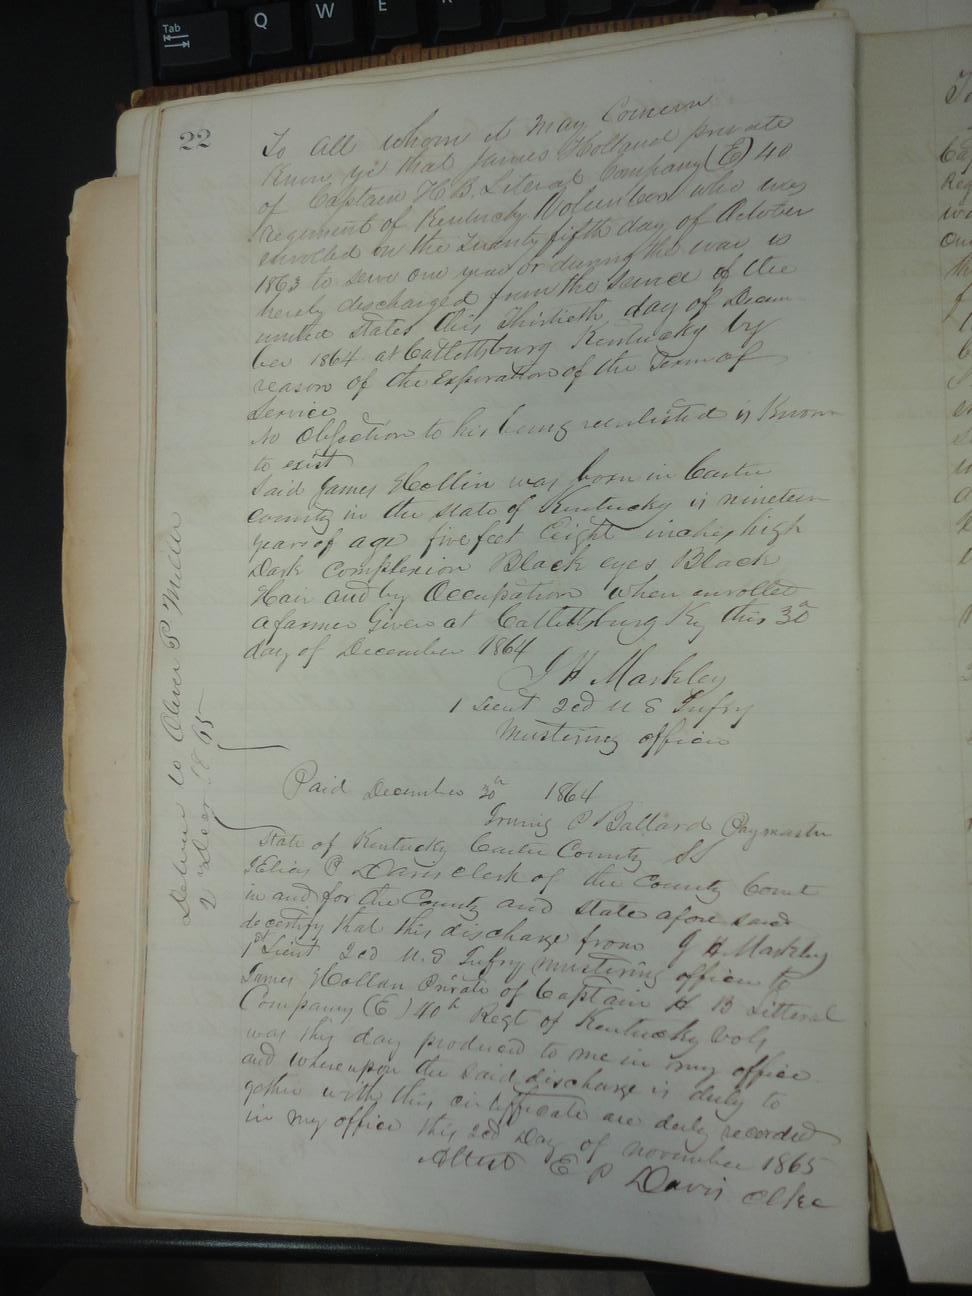 Tab
Q
W
E
R
22
To all whom it May Concern
Know ye that James Holland private
of Captain H. B. Literal Company (E) 40
regement of Kentucky Volunteers who was
enrolled on the Twenty fifth day of October
1863 to serve one year or during the war is
hereby discharged from the Service of the
united States this Thirtieth day of Decem
ber 1864 at Catlettsburg Kentucky by
reason of the Expiration of the Term of
Service
No Objection to his being reenlisted is Known
to exist
Said James Hollin was born in Carter
county in the State of Kentucky is nineteen
years of age five feet Eight inches high
Dark Complexion Black eyes Black
Hair and by Occupation When enrolled
a farmer Given at Catlettsburg Ky this 30th
day of December 1864
J H Markley
1 Lieut 2cd U S Infry
Mustering officer
Paid December 30th 1864
Irving P Ballard Paymaster
State of Kentucky Carter County SS
I Elias P Davis clerk of the County Court
in and for the County and State afore said
do certify that this discharge from J H Markley
1st Lieut 2cd U. S Infry mustering officer to
James Hollan Private of Captain H B Litteral
Company (E) 40th Regt of Kentucky Vols
was this day produced to me in my office
and whereupon the said discharge is duly to
gether with this certifficate are duly recorded
in my office this 2cd Day of november 1865
Attest E P Davis Clke
Deliver to Oliver P Miller
2 Decr 1865